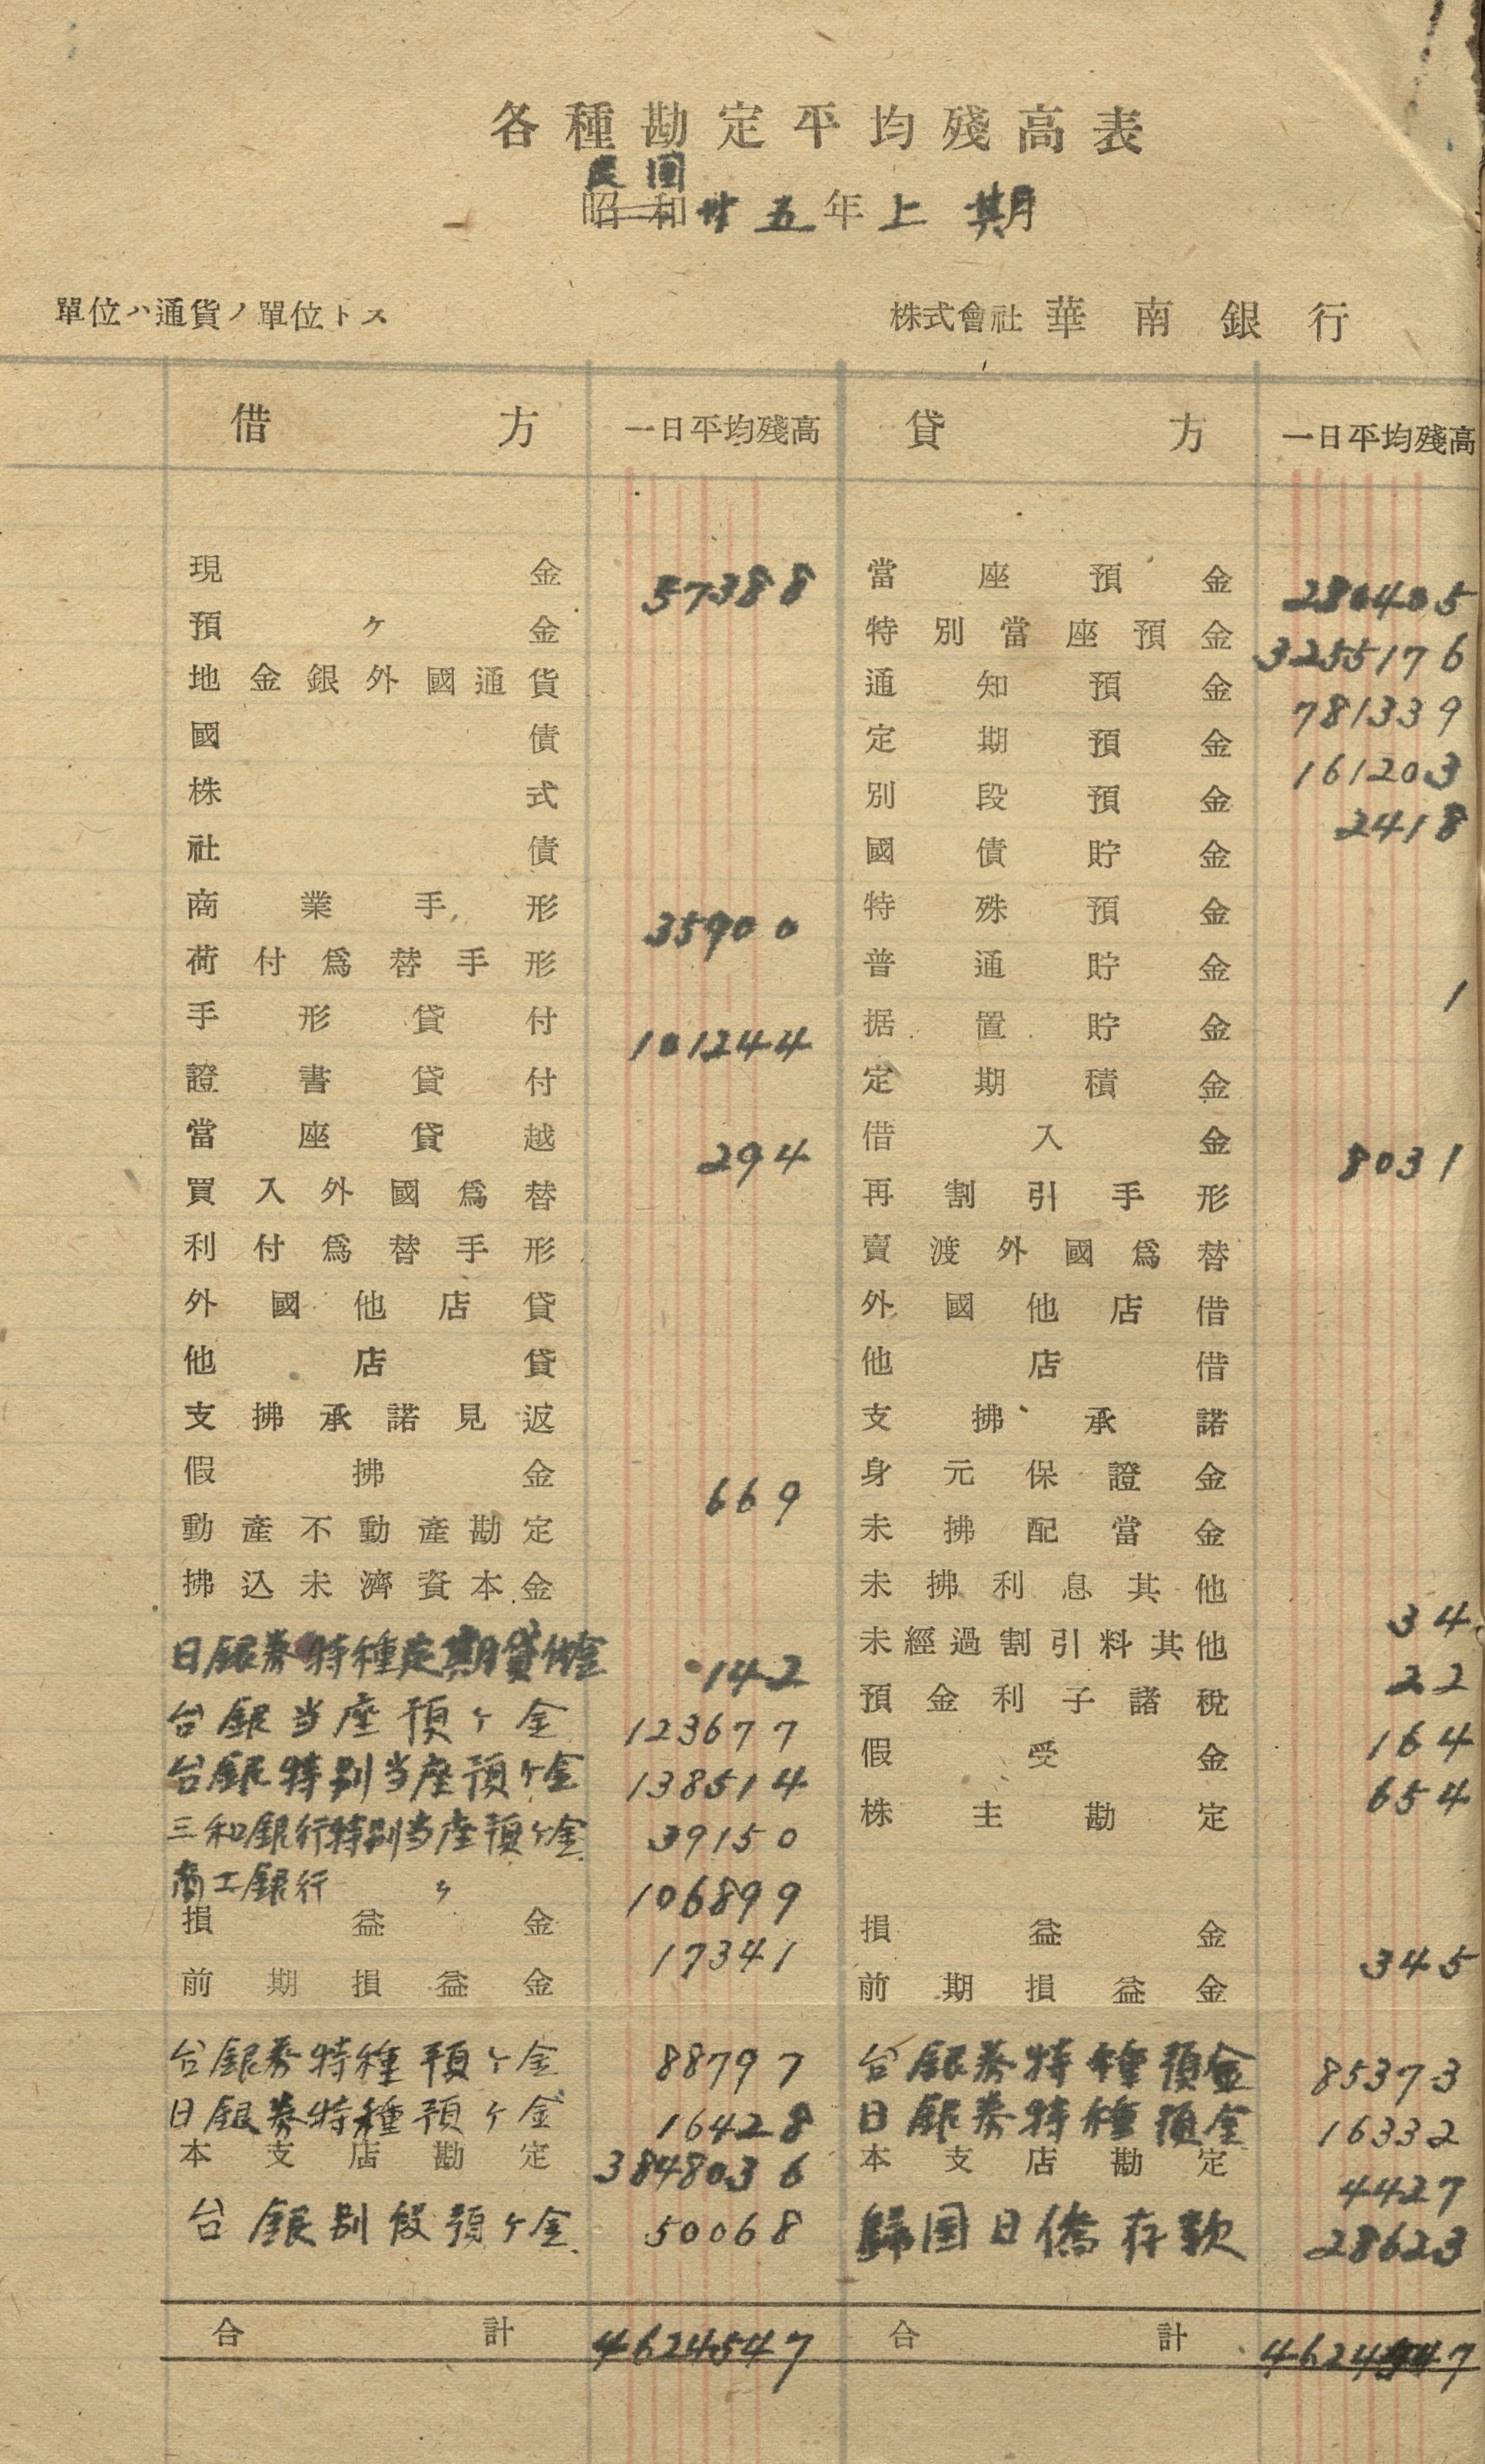 各種勘定平均殘高表
民國
昭和廿五年上期
單位ハ通貨ノ單位トス 株式會社 華南銀行
借方 一日平均殘高 貸方 一日平均殘高
現金 57388 當座預金 280405
預ケ金 特別當座預金 3255176
地金銀外國通貨 通知預金 781339
國債 定期預金 161203
株式 別段預金 2418
社債 國債貯金
商業手形 35900 特殊預金
荷付爲替手形 普通貯金 1
手形貸付 101244 据置貯金
證書貸付 定期積金
當座貸越 294 借入金 8031
買入外國爲替 再割引手形
利付爲替手形 賣渡外國爲替
外國他店貸 外國他店借
他店貸 他店借
支拂承諾見返 支拂承諾
假拂金 669 身元保證金
動產不動產勘定 未拂配當金
拂込未濟資本金 未拂利息其他 34
日銀券特種定期貸付金 142 未經過割引料其他 22
台銀当座預ヶ金 123677 預金利子諸稅 164
台銀特别当座預ヶ金 138514 假受金 654
三和銀行特别当座預ヶ金 39150 株主勘定
商工銀行 〃 106899
損益金 17341 損益金 345
前期損益金 前期損益金
台銀券特種預ヶ金 88797 台銀券特種預金 85373
日銀券特種預ヶ金 16428 日銀券特種預金 16332
本支店勘定 3848036 本支店勘定 4427
台銀别假預ヶ金 50068 歸国日僑存款 28623
合計 4624547 合計 4624547